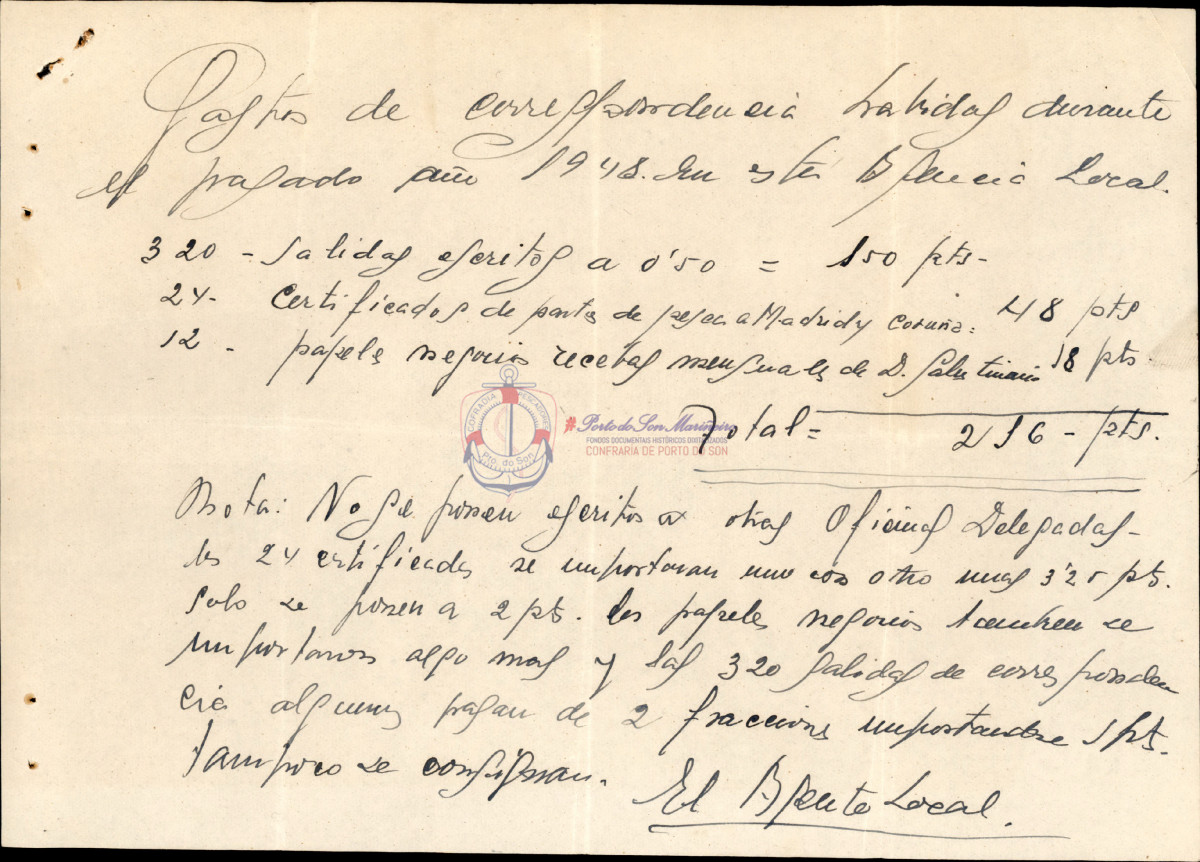 Gastos de correspondencia habidas durante
el pasado año 1948. En esta Agencia Local.
320 - Salidas escritos a 0'50 = 150 pts-
24- Certificados de partes de pesca a Madrid y Coruña: 48 pts
12 - papeles negocios recetas mensuales de D. Salustiano 18 pts.
COFRADIA PESCADORES
Pto. do Son
#Porto do Son Mariñeiro
FONDOS DOCUMENTAIS HISTÓRICOS DIXITALIZADOS
CONFRARIA DE PORTO DO SON
Total = 216 - pts.
Nota: No se ponen escritos a otras Oficinas Delegadas-
los 24 certificados se importaran uno con otro unas 3'25 pts.
solo se ponen a 2 pts. los papeles negocios tambien se
importaron algo mas y las 320 salidas de corresponden
cia algunas pagan de 2 fracciones importandose 1 pts.
tampoco se consignan.
El Agente Local.